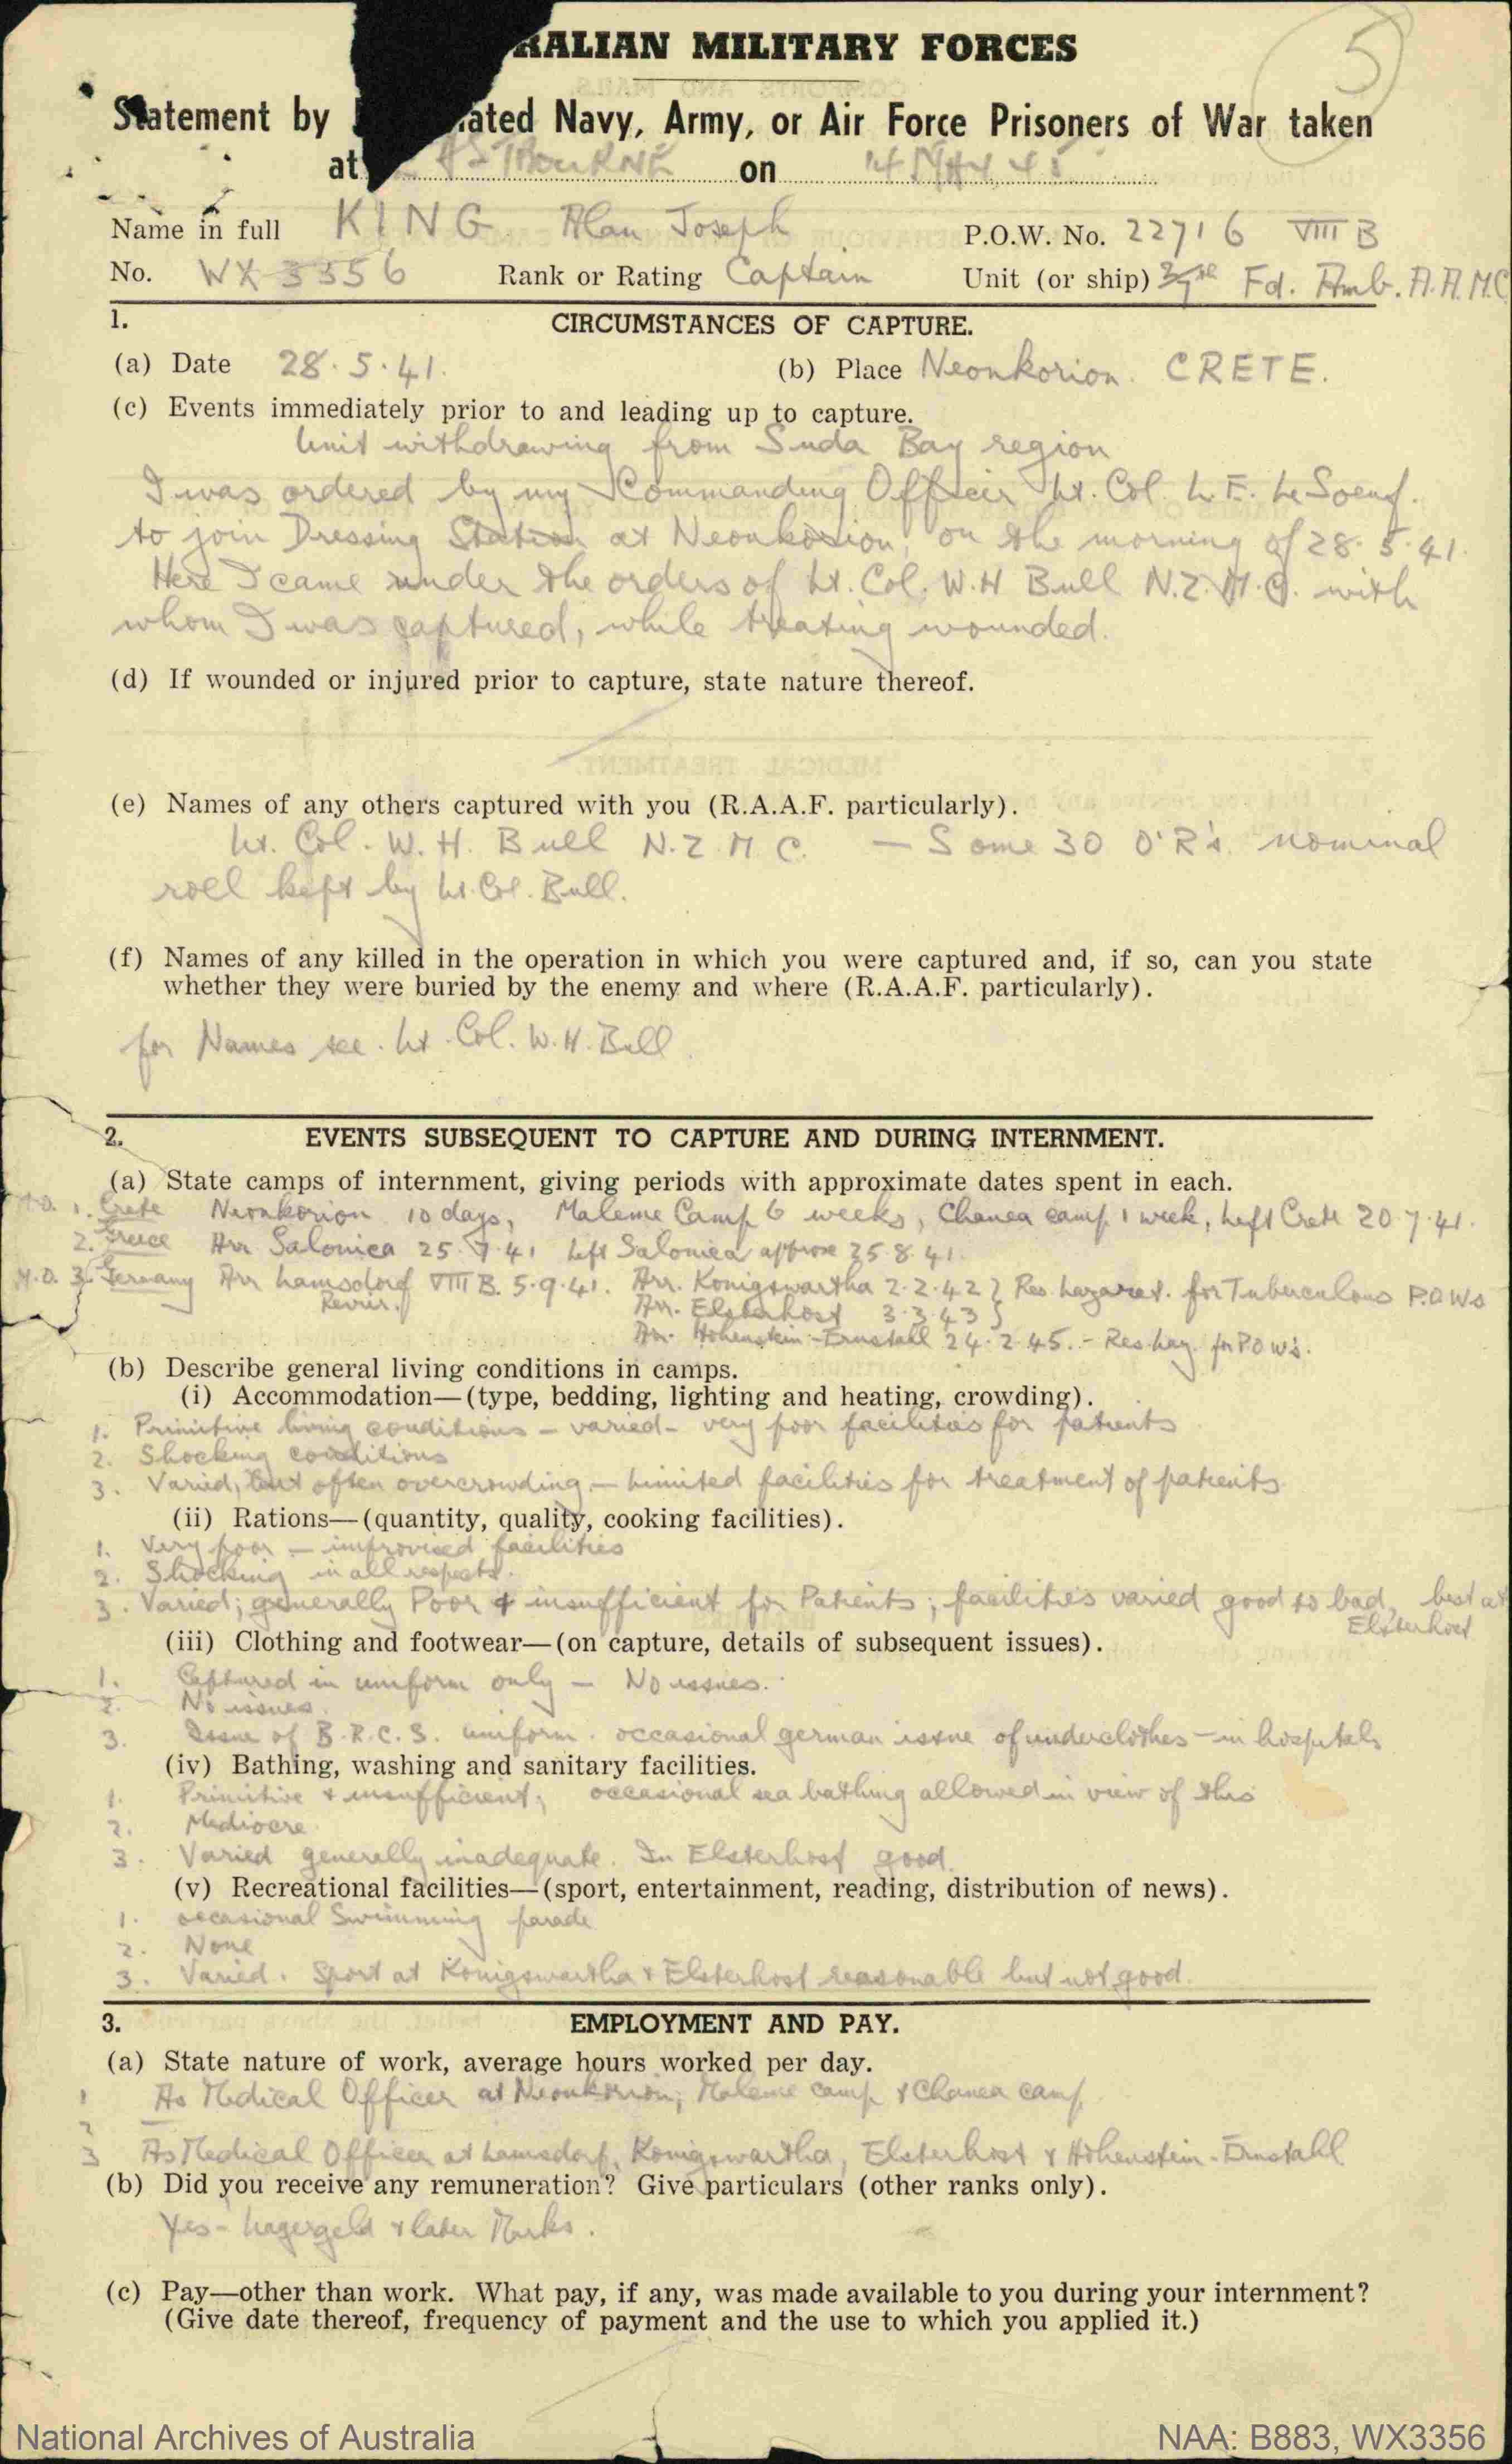 RALIAN MILITARY FORCES
5
Statement by ated Navy, Army, or Air Force Prisoners of War taken
at on 4 MAY 45
Name in full KING Alan Joseph P.O.W. No. 22716 VIII B
No. WX 3356 Rank or Rating Captain Unit (or ship) Fd. Amb. A.A.M.C
1. CIRCUMSTANCES OF CAPTURE.
(a) Date 28.5.41. (b) Place Neonkorion. CRETE.
(c) Events immediately prior to and leading up to capture.
Unit withdrawing from Suda Bay region
I was ordered by my Commanding Officer Lt. Col. L. E. Le Soeuf.
to join Dressing Station at Neonkorion, on the morning of 28.5.41.
Here I came under the orders of Lt. Col. W. H Bull N.Z.M.C. with
whom I was captured, while treating wounded.
(d) If wounded or injured prior to capture, state nature thereof.
(e) Names of any others captured with you (R.A.A.F. particularly).
Lt. Col. W. H. Bull N.Z.M.C. — Some 30 O'R's. nominal
roll kept by Lt. Col. Bull.
(f) Names of any killed in the operation in which you were captured and, if so, can you state
whether they were buried by the enemy and where (R.A.A.F. particularly).
for Names see. Lt. Col. W. H. Bull
2. EVENTS SUBSEQUENT TO CAPTURE AND DURING INTERNMENT.
(a) State camps of internment, giving periods with approximate dates spent in each.
M.O. 1. Crete Neonkorion 10 days, Maleme Camp 6 weeks, Chanea camp 1 week, Left Crete 20.7.41.
2. Greece Arr Salonica 25.7.41 left Salonica approx 25.8.41.
M.O. 3. Germany Arr Lamsdorf VIII B. 5.9.41. Arr. Konigswartha 2.2.42 } Res. Lazaret. for Tuberculous P.O.Ws
Revier. Arr. Elsterhost 3.3.43 }
Arr. Hohenstein-Ernstahl 24.2.45. - Res. Laz. for P.O.W's.
(b) Describe general living conditions in camps.
(i) Accommodation—(type, bedding, lighting and heating, crowding).
1. Primitive living conditions - varied - very poor facilities for patients
2. Shocking conditions
3. Varied, but often overcrowding - Limited facilities for treatment of patients.
(ii) Rations—(quantity, quality, cooking facilities).
1. Very poor - improvised facilities
2. Shocking in all respects.
3. Varied; generally Poor & insufficient for Patients; facilities varied good to bad, best at
Elsterhost
(iii) Clothing and footwear—(on capture, details of subsequent issues).
1. Captured in uniform only - No issues.
2. No issues.
3. Issue of B.R.C.S. uniform. occasional german issue of underclothes - in hospitals
(iv) Bathing, washing and sanitary facilities.
1. Primitive & insufficient; occasional sea bathing allowed in view of this
2. Mediocre
3. Varied generally inadequate. In Elsterhost good.
(v) Recreational facilities—(sport, entertainment, reading, distribution of news).
1. occasional Swimming parade
2. None
3. Varied. Sport at Konigswartha & Elsterhost reasonable but not good.
3. EMPLOYMENT AND PAY.
(a) State nature of work, average hours worked per day.
1 As Medical Officer at Neonkorion, Maleme camp & Chanea camp
2 —
3 As Medical Officer at Lamsdorf, Konigswartha, Elsterhost & Hohenstein-Ernstahl
(b) Did you receive any remuneration? Give particulars (other ranks only).
Yes - Lagergeld & later Marks.
(c) Pay—other than work. What pay, if any, was made available to you during your internment?
(Give date thereof, frequency of payment and the use to which you applied it.)
National Archives of Australia NAA: B883, WX3356